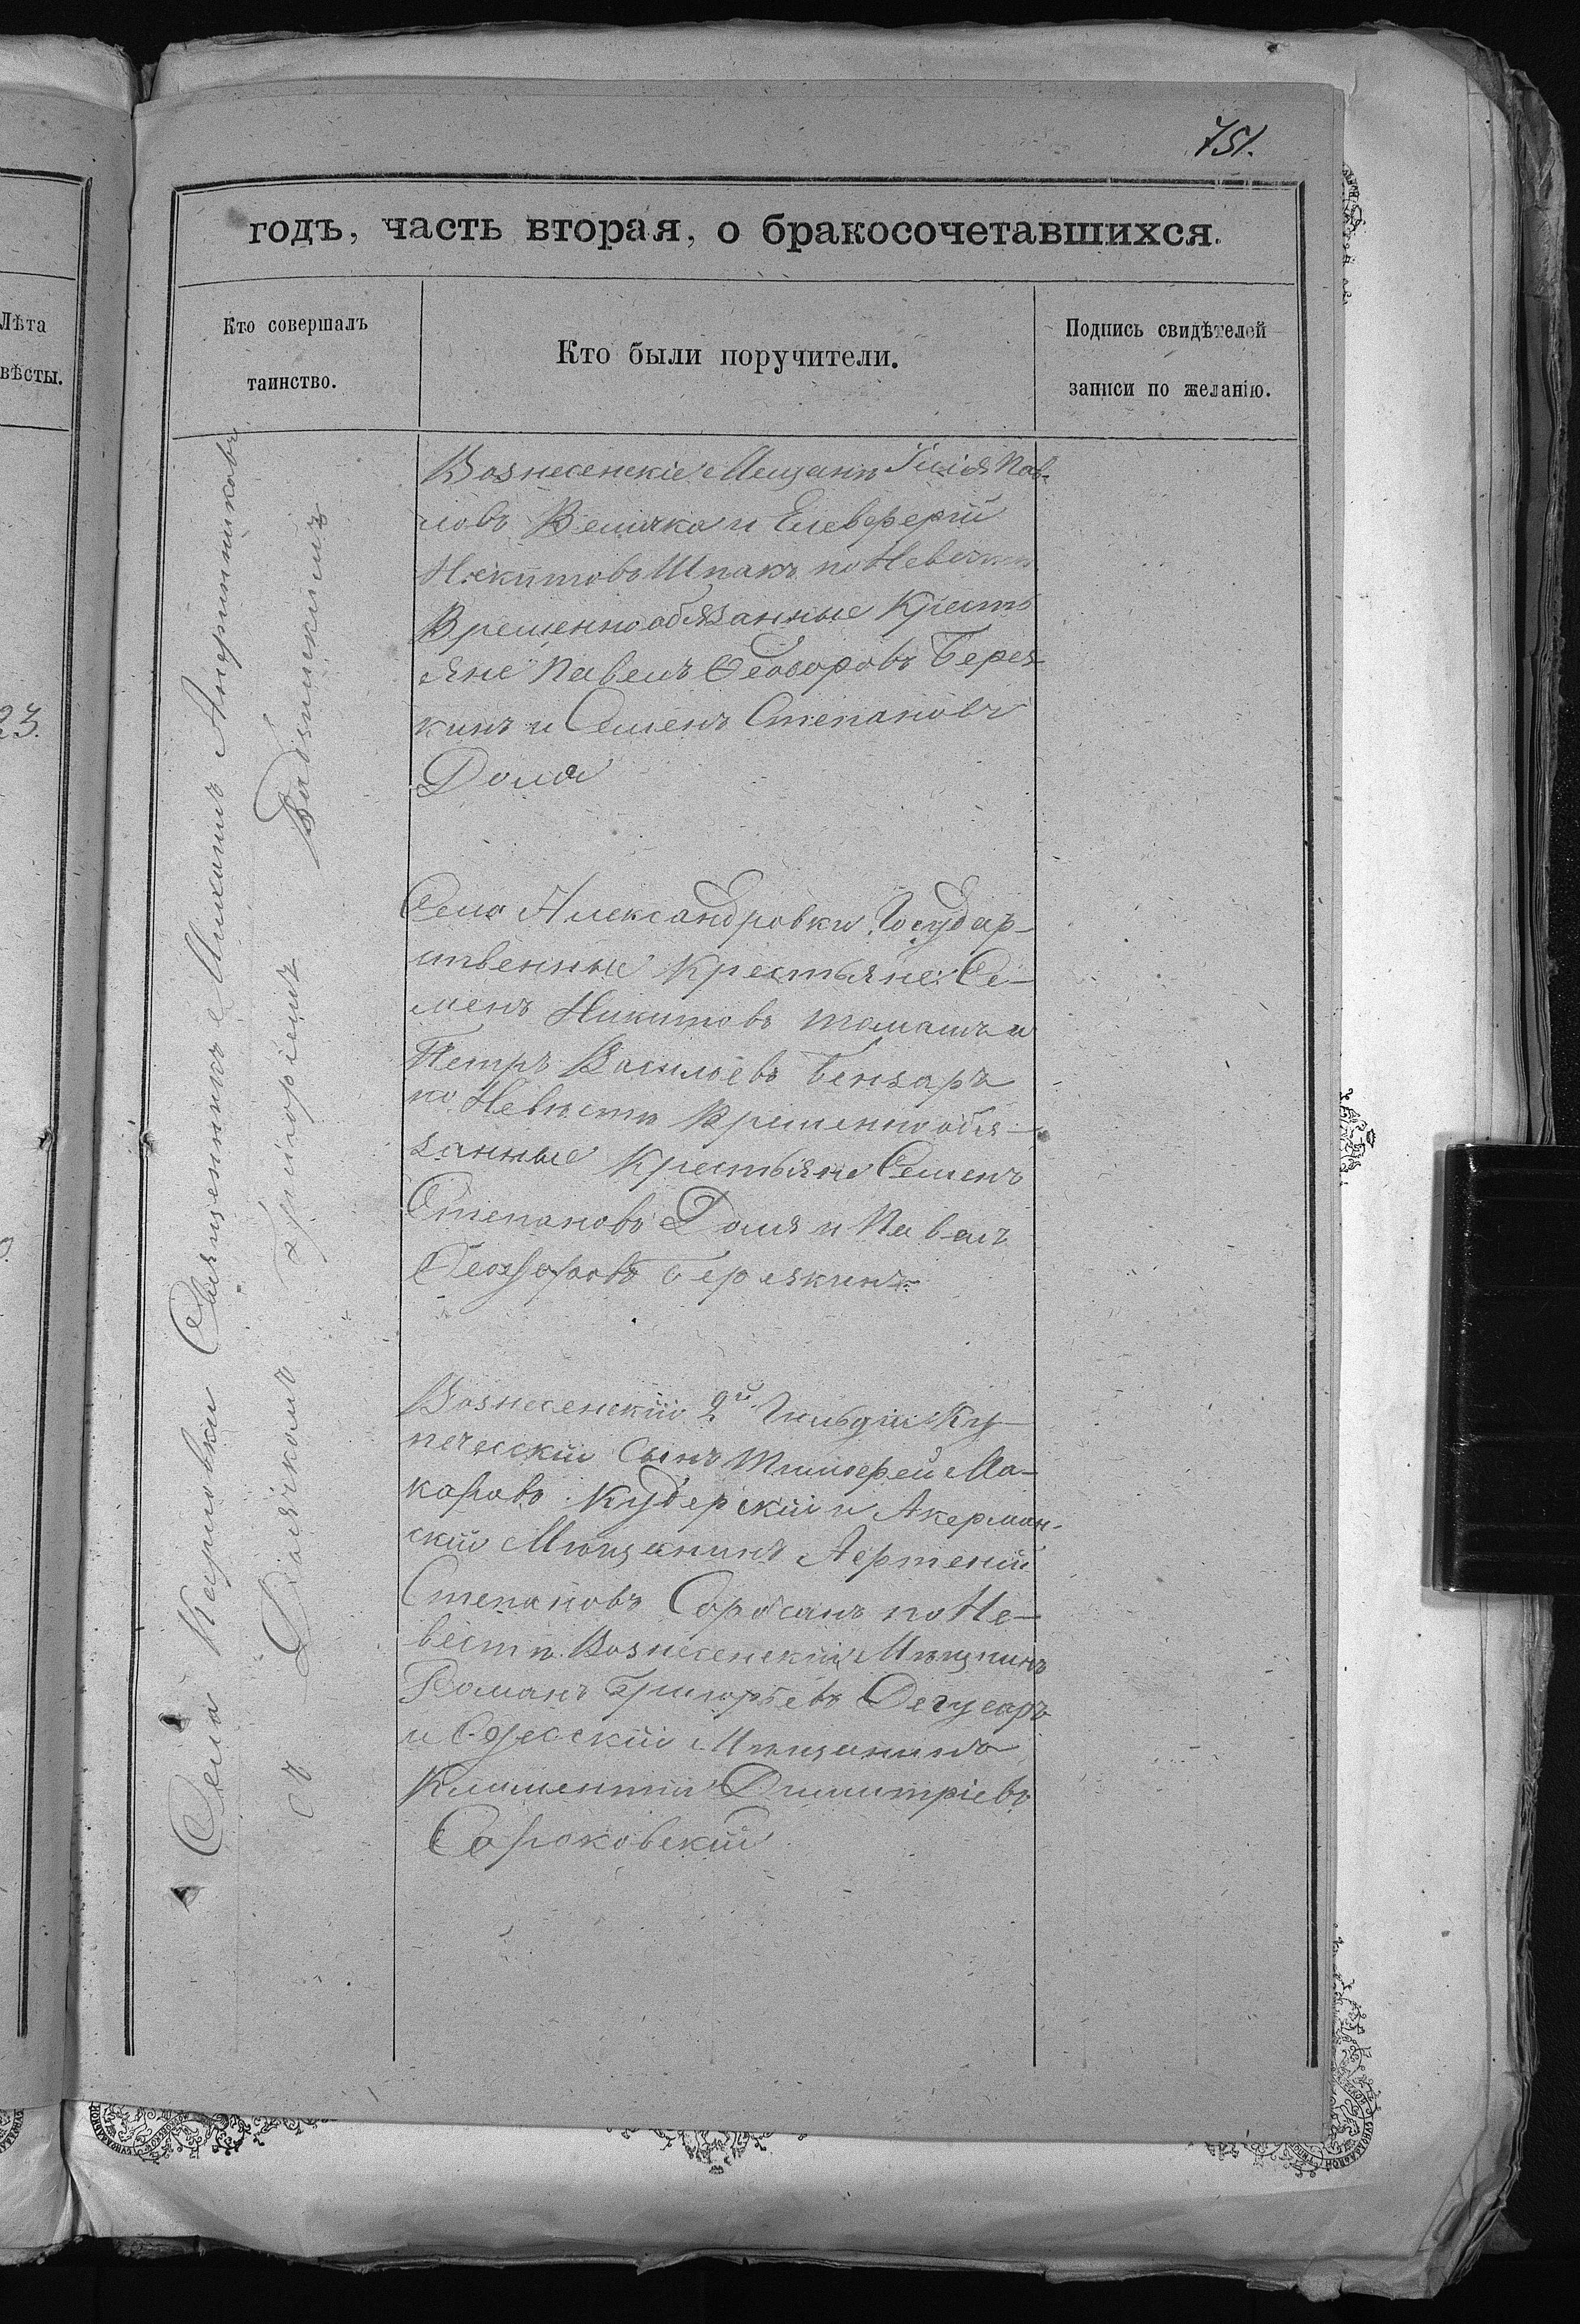 751.
годъ, часть вторая, о бракосочетавшихся.
Лѣта
вѣсты.
23.
Кто совершалъ
таинство.
Кто были поручители.
Подпись свидѣтелей
записи по желанію.
Села Священникъ
съ Діаякомъ Григоріемъ
Вознесенскіе Мещани Пав-
ловъ Велика и Елевферій
Шпакъ по Невестѣ
Временнообязанные Кресть
яне Павелъ Ѳеодоровъ Беряз
кинъ и Семенъ Степановъ
Дома
Села Александровки Государ-
ственные Крестьяне: Се-
менъ Никитовъ Томашъ и
Петръ Васильевъ Бензаръ
по Невѣстѣ Временнообя-
занные Крестьяне Семенъ
Степановъ Доля и Павелъ
Ѳеодоровъ Берязкинъ.
Вознесенскій 2й Гильдіи Ку-
печескій Сынъ Тимоѳей Ма-
каровъ Кудерскій и Акерман-
скій Мѣщанинъ Артеній
Степановъ по Не-
вестѣ Вознесенскій Мѣщанинъ
Романъ Григорьевъ
и Одесскій Мѣщанинъ
Климентій Димитріевъ
Сороковскій